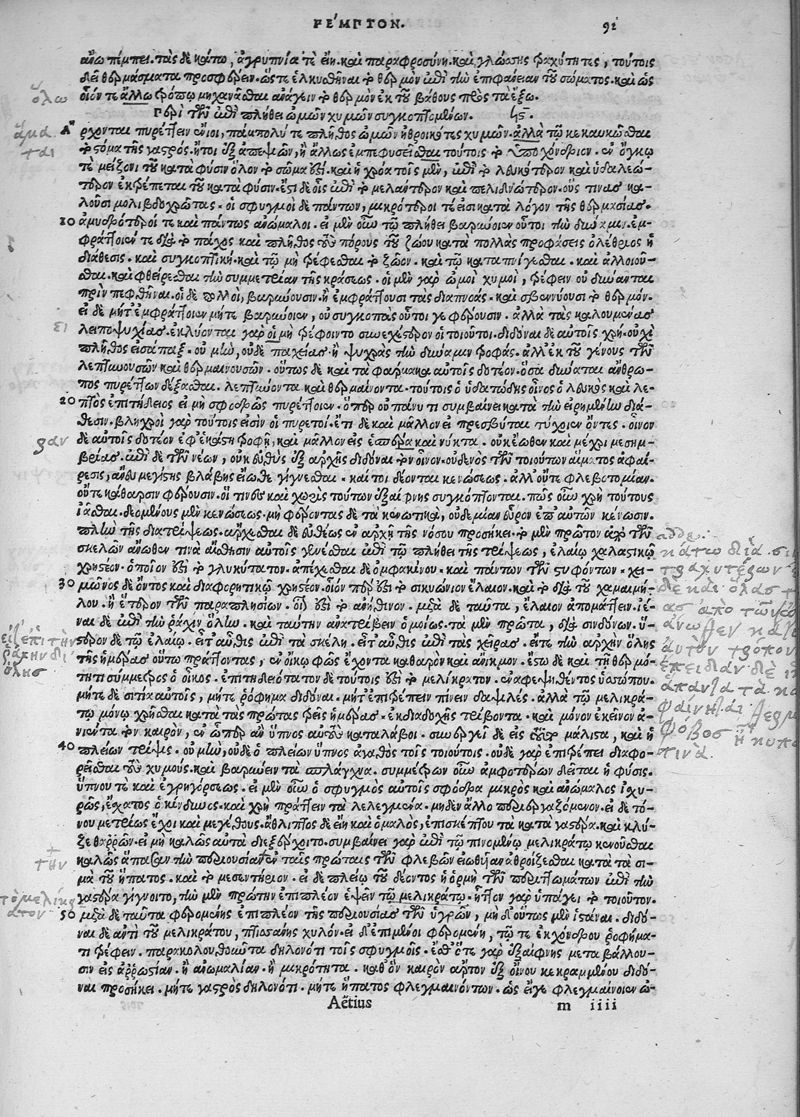 ΠΕΜΠΤΟΝ. 91
ἄνω πέμπει. τὰς δὲ κάτω, ἀγρυπνία τὲ εἴη. καὶ παραφροσύνη. καὶ γλώσσης τραχύτητες, τούτοις
δεῖ θερμάσματα προσφέρειν. ὥστε ἑλκυσθῆναι τὸ θερμὸν ἐπὶ τὴν ἐπιφάνειαν τοῦ σώματος. καὶ ὡς
οἷόν τε ἄλλῳ τρόπῳ μηχανᾶσθαι ἀνάγειν τὸ θερμὸν ἐκ τοῦ βάθους πρὸς τὰ ἔξω.
Περὶ τῶν ἐπὶ πλήθει ὠμῶν χυμῶν συγκοπτομένων.
Ἄρχονται πυρέττειν ἔνιοι, πάμπολύ τε πλῆθος ὠμῶν ἠθροικότες χυμῶν. ἀλλὰ τῷ κεκακῶσθαι
τὸ στόμα τῆς γαστρὸς. ἤτοι ἐξ ἀπεψιῶν, ἢ ἄλλως ἐμπεφυσεῖσθαι τούτοις τὸ ὑποχόνδριον. ἐν ὄγκῳ
τὲ μείζονι τοῦ κατὰ φύσιν ὅλον τὸ σῶμα ἐστί. καὶ ἡ χρόα τοῖς μὲν, ἐπὶ τὸ λευκότερον καὶ ὑδαλεώ-
τερον ἐκτρέπεται τοῦ κατὰ φύσιν. ἔστι δὲ οἷς ἐπὶ τὸ μελάντερον καὶ πελιδνώτερον. οὓς τινὲς κα-
λοῦσι μολιβδοχρῶτας. οἱ σφυγμοὶ δὲ πάντων, μικρότεροί τέ εἰσι κατὰ λόγον τῆς θερμασίας.
ἀμυδρότεροί τε καὶ πάντως ἀνώμαλοι. εἰ μὲν οὖν τῷ πλήθει βαρύνοιεν οὗτοι τὴν δύναμιν. ἐμ-
φράττοιέν τε διὰ τὸ πάχος καὶ πλῆθος τοὺς πόρους τοῦ ζώου κατὰ πολλὰς προφάσεις ὀλέθριος ἡ
διάθεσις. καὶ συγκοπτική. καὶ τῷ μὴ τρέφεσθαι τὸ ζῶον. καὶ τῷ καταπνίγεσθαι. καὶ ἀλλοιοῦ-
σθαι. καὶ φθείρεσθαι τὴν συμμετρίαν τῆς κράσεως. οἱ μὲν γὰρ ὠμοὶ χυμοὶ, τρέφειν οὐ δύνανται
πρὶν πεφθῆναι. οἱ δὲ πολλοὶ, βαρύνουσιν. ἢ ἐμφράττουσι τὰς διαπνοάς. καὶ σβεννύουσι τὸ θερμόν.
εἰ δὲ μήτ' ἐμφράττοιεν μήτε βαρύνοιεν, οὐ συγκοπὰς οὗτοί γε φέρουσιν. ἀλλὰ τὰς καλουμένας
λειποψυχίας. ἐκλύονται γὰρ οἱ μὴ τρέφοιντο συνεχέστερον οἱ τοιοῦτοι. διδόναι δὲ αὐτοῖς χρὴ. οὐχὶ
πλῆθος εἰσάπαξ. οὐ μὴν, οὐδὲ παχείας ἢ ψυχρὰς τὴν δύναμιν τροφὰς. ἀλλ' ἐκ τοῦ γένους τῶν
λεπτυνουσῶν καὶ θερμαινουσῶν. οὕτως δὲ καὶ τὰ φάρμακα αὐτοῖς δοτέον. ὅσα δύναται ἄνθρω-
πος πυρέττων δέξασθαι. λεπτύνοντα καὶ θερμαίνοντα. τούτοις ὁ ὑδατώδης οἶνος ὁ λευκὸς καὶ λε-
πτὸς ἐπιτήδειος εἰ μὴ σφοδρῶς πυρέττοιεν. ὅπερ οὐ πάνυ τι συμβαίνει κατὰ τὴν εἰρημένην διά-
θεσιν. βληχροὶ γὰρ τούτοις εἰσὶν οἱ πυρετοί. ἔτι δὲ καὶ μᾶλλον εἰ πρεσβῦται τύχοιεν ὄντες. οἶνον
δὲ αὐτοῖς δοτέον ἐφ' ἑκάστῃ τροφῇ. καὶ μᾶλλον εἰς ἑσπέρα καὶ νύκτα. οὐκ ἕωθεν καὶ μέχρι μεσημ-
βρίας. ἐπὶ δὲ τῶν νέων, οὐκ εὐθὺς ἐξ ἀρχῆς διδόναι τὸν οἶνον. οὐδενὸς τῶν τοιούτων αἵματος ἀφαί-
ρεσις, ἄνευ μεγίστης βλάβης εἴωθε γίγνεσθαι. καί τοι δέονται κενώσεως. ἀλλ' οὔτε φλεβοτομίαν.
οὔτε κάθαρσιν φέρουσιν. οἵ τινες καὶ χωρὶς τούτων ἐξαίφνης συγκόπτονται. πῶς οὖν χρὴ τούτους
ἰᾶσθαι. δεομένους μὲν κενώσεως. μὴ φέροντας δὲ τὰ κενωτικά, οὐδεμίαν εὗρον ἐπ' αὐτῶν κένωσιν.
πλὴν τῆς διατρίψεως. ἄρχεσθαι δὲ εὐθέως ἐν ἀρχῇ τῆς νόσου προσήκει. τὸ μὲν πρῶτον ἀπὸ τῶν
σκελῶν ἄνωθεν τινὰ αἴσθησιν αὐτοῖς γενέσθαι ἐπὶ τῷ πλήθει τῆς τρίψεως, ἐλαίῳ χαλαστικῷ
χρηστέον. ὁποῖον ἐστὶ τὸ γλυκύτατον. ἀπέχεσθαι δὲ ὀμφακίνου. καὶ πάντων τῶν στυφόντων. χει-
μῶνος δὲ ὄντος καὶ διαφορητικῷ χρηστέον. οἷόν πέρ ἐστι τὸ σικυώνιον ἔλαιον. καὶ τὸ διὰ τοῦ χαμαιμή-
λου. ἢ ἕτερον τῶν παραπλησίων. οἷόν ἐστι τὸ ἀνήθινον. μετὰ δὲ ταῦτα, ἔλαιον ἀπομάττειν. ἰέ-
ναι δὲ ἐπὶ τὴν ῥάχιν ὅλην. καὶ ταύτην ἀνατρίβειν ὁμοίως. τὰ μὲν πρῶτα, διὰ σινδόνων. ὕ-
στερον δὲ τῷ ἐλαίῳ. εἶτ' αὖθις ἐπὶ τὰ σκέλη. εἶτ' αὖθις ἐπὶ τὰς χεῖρας. εἴτε τὴν ἀρχὴν ὅλης
τῆς ἡμέρας οὕτω πράττοντας, ἐν οἴκῳ φῶς ἔχοντα καθαρὸν καὶ αὔκμον. ἔστω δὲ καὶ τῇ θερμό-
τητι σύμμετρος ὁ οἶκος. ἐπιτηδειότατον δὲ τούτοις ἐστὶ τὸ μελίκρατον. ἐναφεψηθέντος ὑσσώπου.
μήτε δὲ σιτία αὐτοῖς, μήτε ῥόφημα διδόναι. μήτ' ἐπιτρέπειν πίνειν δαψιλές. ἀλλὰ τῷ μελικρά-
τῳ μόνῳ χρῆσθαι κατὰ τὰς πρώτας τρεῖς ἡμέρας. ἐκ διαδοχῆς τρίβοντα. καὶ μόνον ἐκεῖνον ἀ-
νιέντα τὸν καιρὸν, ἐν ᾧπερ ἂν ὕπνος αὐτοὺς καταλάβοι. συνεργεῖ δὲ εἰς πέψιν μάλιστα, καὶ ἡ
πλείων τρῖψις. οὐ μὴν, οὐδὲ ὁ πλείων ὕπνος ἀγαθὸς τοῖς τοιούτοις. οὐδὲ γὰρ ἐπιτρέπει διαφο-
ρεῖσθαι τοὺς χυμούς. καὶ βαρύνειν τὰ σπλάγχνα. συμμέτρων οὖν ἀμφοτέρων δεῖται ἡ φύσις.
ὕπνου τὲ καὶ ἐγρηγόρσεως. εἰ μὲν οὖν ὁ σφυγμὸς αὐτοῖς σφόδρα μικρὸς καὶ ἀνώμαλος ἰσχυ-
ρῶς, ἔσχατος ὁ κίνδυνος. καὶ χρὴ πράττειν τὰ λελεγμένα. μηδὲν ἄλλο περιεργαζόμενον. εἰ δὲ τό-
νου μετρίως ἔχοι καὶ μεγέθους. ἄθλιπτος δὲ εἴη καὶ ὁμαλὸς, ἐπισκέπτου τὰ κατὰ γαστέρα. καὶ κλύ-
ζε θαρρῶν. εἰ μὴ καλῶς αὐτὰ διεξέρχοιτο. συμβαίνει γὰρ ἐπὶ τῷ πινομένῳ μελικράτῳ κενοῦσθαι
καλῶς ἅπασαν τὴν περιουσίαν ἐν ταῖς πρώταις τῶν φλεβῶν εἰωθυῖαν ἀθροίζεσθαι κατὰ τὰ σι-
μὰ τοῦ ἥπατος. καὶ τὸ μεσεντέριον. εἰ δὲ πλείω τοῦ δέοντος ἡ ὁρμὴ τῶν περιττωμάτων ἐπὶ τὴν
γαστέρα γίγνοιτο, τὴν μὲν πρώτην ἐπιπλέον ἕψειν τῷ μελικράτῳ. ἧττον γὰρ ὑπάγει τὸ τοιοῦτον.
μετὰ δὲ ταῦτα φερομένης ἐπιπλέον τῆς περιουσίας τῶν ὑγρῶν, μηδ' οὕτως μὲν ἱστάναι. διδό-
ναι δὲ ἀντὶ τοῦ μελικράτου, πτισάνης χυλόν. εἰ δ' ἐπιμένοι φερομένη, τῷ τε ἐκ χόνδρου ῥοφήμα-
τι τρέφειν. παρακολουθοῦντα δηλονότι τοῖς σφυγμοῖς. ἔσθ' ὅτε γὰρ ἐξαίφνης μεταβάλλου-
σιν εἰς ἀρρωστίαν. ἢ ἀνωμαλίαν. ἢ μικρότητα. καθ' ὃν καιρὸν ἄρτον ἐξ οἴνου κεκραμένου διδό-
ναι προσήκει. μήτε γαστρὸς δηλονότι. μήτε ἥπατος φλεγμαινόντων. ὡς εἴγε φλεγμαίνοιεν ὦ-
Aëtius m iiii